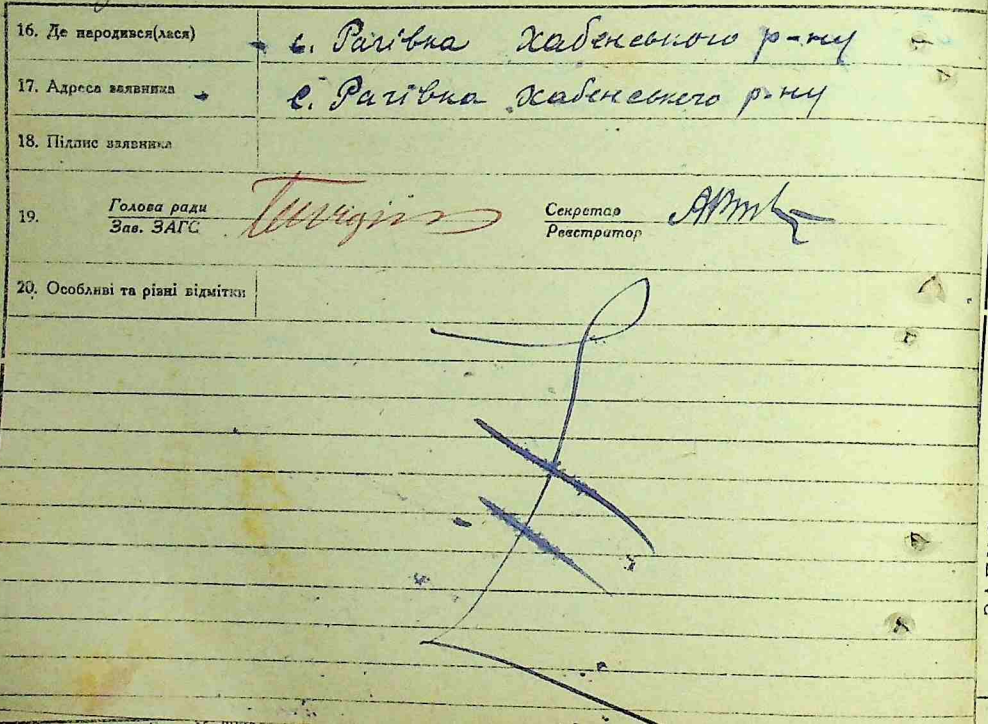 16. Де народився(лася) с. Рагівка Хабенського р-ну
17. Адреса заявника с. Рагівка Хабенського р-ну
18. Підпис заявника
19. Голова ради Секретар
Зав. ЗАГС Реєстратор
20. Особливі та рівні відмітки